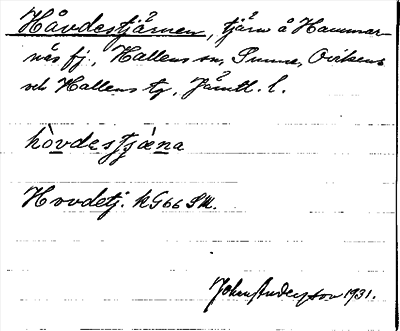 Håvdestjärnen, tjärn å Hammar-
näs fj., Hallens sn, Sunne, Ovikens
och Hallens tg, Jämtl. l.
hòvdestjæna
Hovdetj. k G66 SW.
John Anderson 1931.